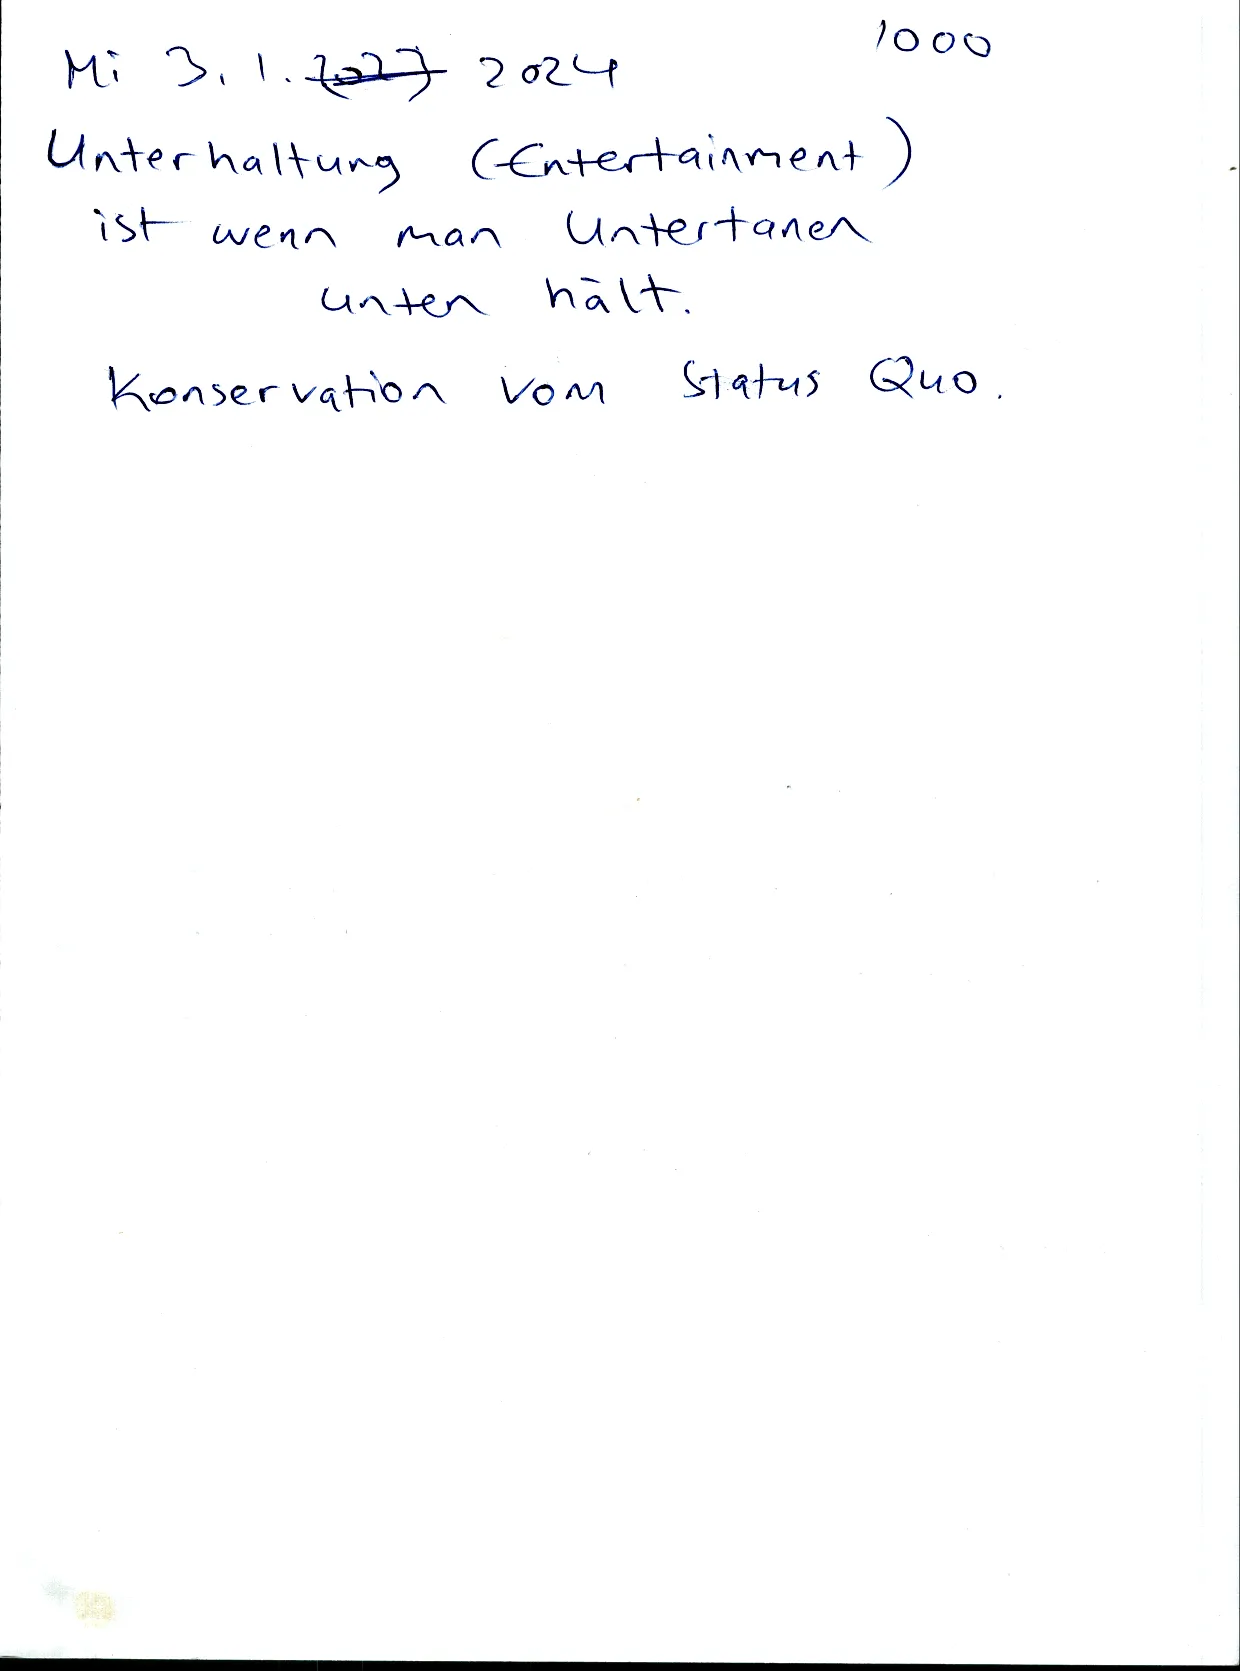 1000
Mi 3.1. 2023 2024
Unterhaltung (Entertainment)
ist wenn man Untertanen
unten hält.
Konservation vom Status Quo.